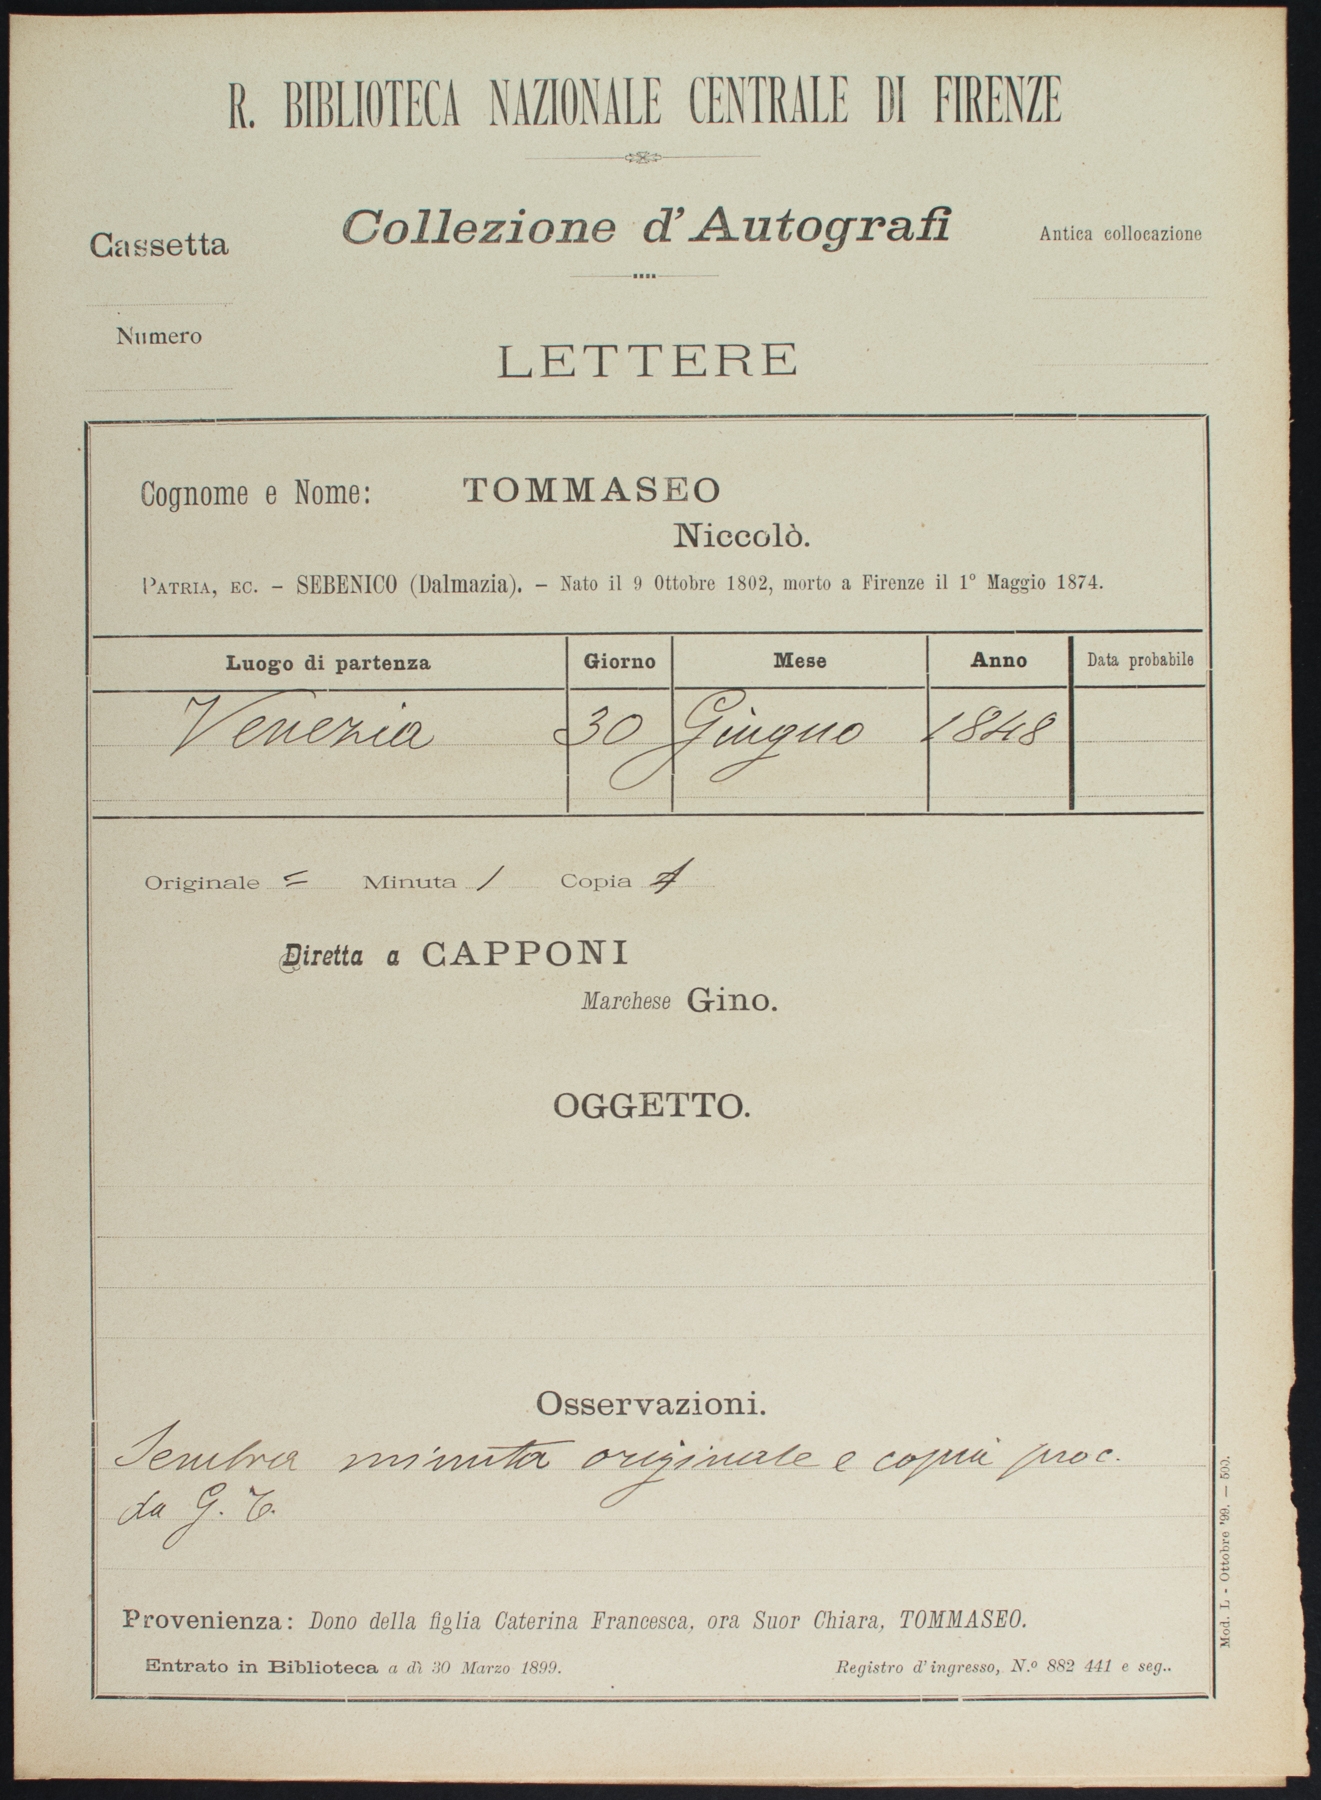 R. BIBLIOTECA NAZIONALE CENTRALE DI FIRENZE
Collezione d'Autografi
Cassetta
Antica collocazione
Numero
LETTERE
Cognome e Nome: TOMMASEO
Niccolò.
PATRIA, EC. – SEBENICO (Dalmazia). – Nato il 9 Ottobre 1802, morto a Firenze il 1° Maggio 1874.
Luogo di partenza Giorno Mese Anno Data probabile
Venezia 30 Giugno 1848
Originale = Minuta 1 Copia
Diretta a CAPPONI
Marchese Gino.
OGGETTO.
Osservazioni.
Sembra minuta originale e copia proc.
da G. T.
Provenienza: Dono della figlia Caterina Francesca, ora Suor Chiara, TOMMASEO.
Entrato in Biblioteca a dì 30 Marzo 1899. Registro d'ingresso, N.º 882 441 e seg..
Mod. L - Ottobre '99. — 500.